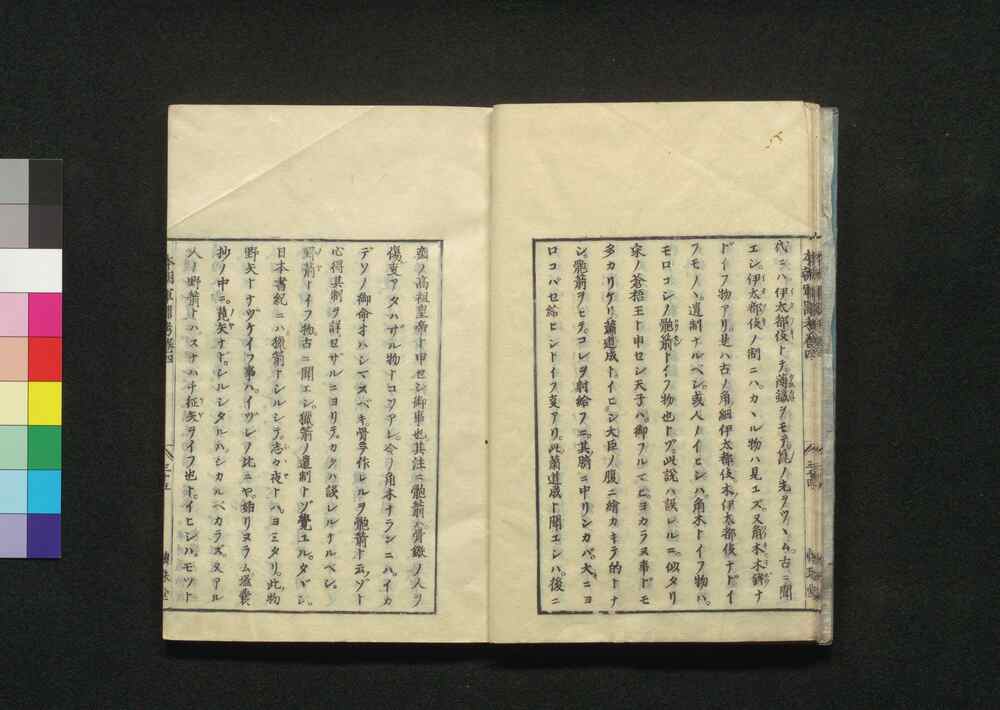 代ニハ伊太都伎トテ薄鐵ヲモテ箆ノ先ヲツヽム古ニ聞
エシ伊太都伎ノ制ニハカヽル物ハ見エズ又角木木鋒ナ
ドイフ物アリ是ハ古ノ角細伊太都伎木伊太都伎ナドイ
フモノヽ遺制ナルベシ或人ノイヒシハ角木トイフ物ハ
モロコシノ骲箭トイフ物也トゾ此説ハ誤レルニ似タリ
宋ノ蒼梧王ト申セシ天子ハ御フルマヒヨカラヌ事ドモ
多カリケリ蕭道成トイヒシ大臣ノ腹ニ繪カキテ的トナ
シ骲箭ヲモテコレヲ射給フニ其臍ニ中リシカバ大ニヨ
ロコバセ給ヒシトイフ事アリ此蕭道成ト聞エシハ後ニ
齊ノ高祖皇帝ト申セシ御事也其注ニ骲箭ハ骨鏃ノ人ヲ
傷フニアタハザル物トコソアレ今ノ角木ナランニハイカ
デソノ御命オハシマスベキ骨ヲ作レルヲ骲箭ト云ゾト
心得其制ヲ詳ニセサルニヨリテカクハ誤レルナルベシ
野箭トイフ物古ニ聞エシ獵箭ノ遺制トゾ覺エル タゞシ
日本書紀ニハ獵箭トシルシテ志々夜トハヨミタリ此物
野矢トナヅケイフ事ハイヅレノ比ニヤ始リヌラム壒囊
抄ノ中ニ箟矢ナドシルシタルハシカルベカラズ又アル
人ノ野箭トハスナハチ征矢ヲイフ也トイヒシハモツト